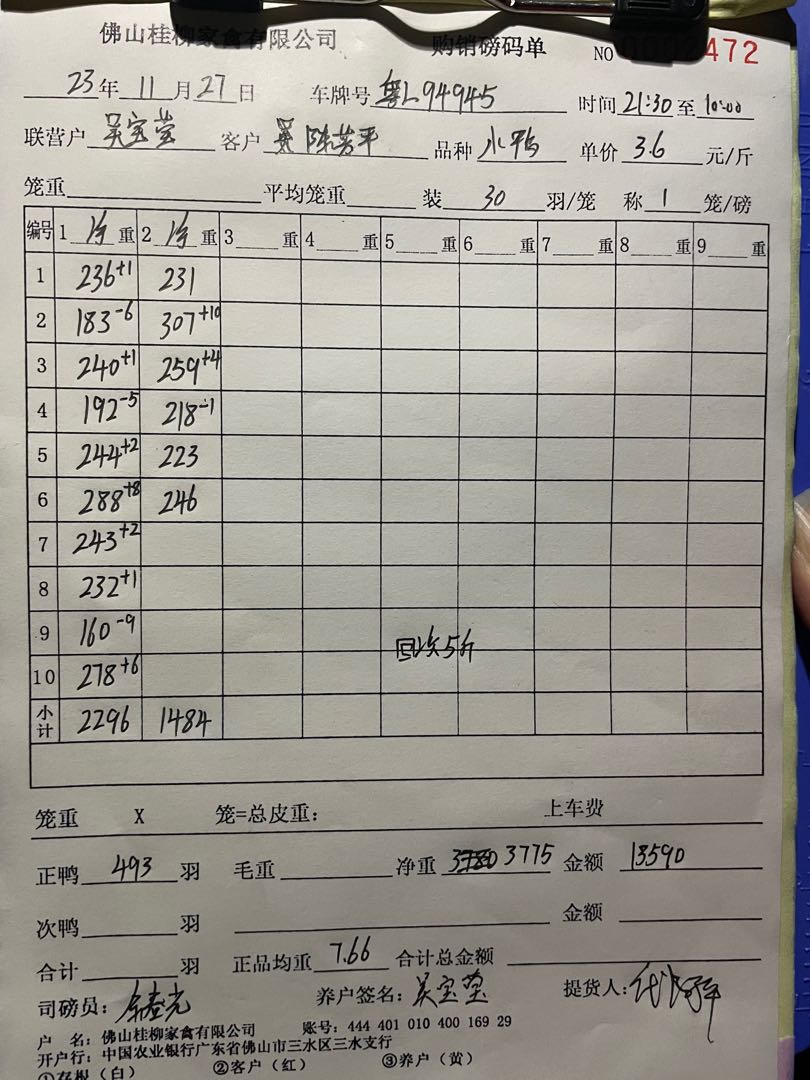 佛山桂柳家禽有限公司 购销磅码单 NO 472
23年11月27日 车牌号 粤L94945 时间21:30至10:00
联营户 吴宝莹 客户 陈芳平 品种 水鸭 单价 3.6 元/斤
笼重 平均笼重 装 30 羽/笼 称 1 笼/磅
编号 1 净 重 2 净 重 3 重 4 重 5 重 6 重 7 重 8 重 9 重
1 236+1 231
2 183-6 307+10
3 240+1 259+4
4 192-5 218-1
5 244+2 223
6 288+8 246
7 243+2
8 232+1
9 160-9
10 278+6
5斤
小计 2296 1484
笼重 X 笼=总皮重: 上车费
正鸭 493 羽 毛重 净重 3775 金额 13590
次鸭 羽 金额
合计 羽 正品均重 7.66 合计总金额
司磅员: 养户签名: 吴宝莹 提货人:
户 名: 佛山桂柳家禽有限公司 账号: 444 401 010 400 169 29
开户行: 中国农业银行广东省佛山市三水区三水支行
①存根(白) ②客户(红) ③养户(黄)